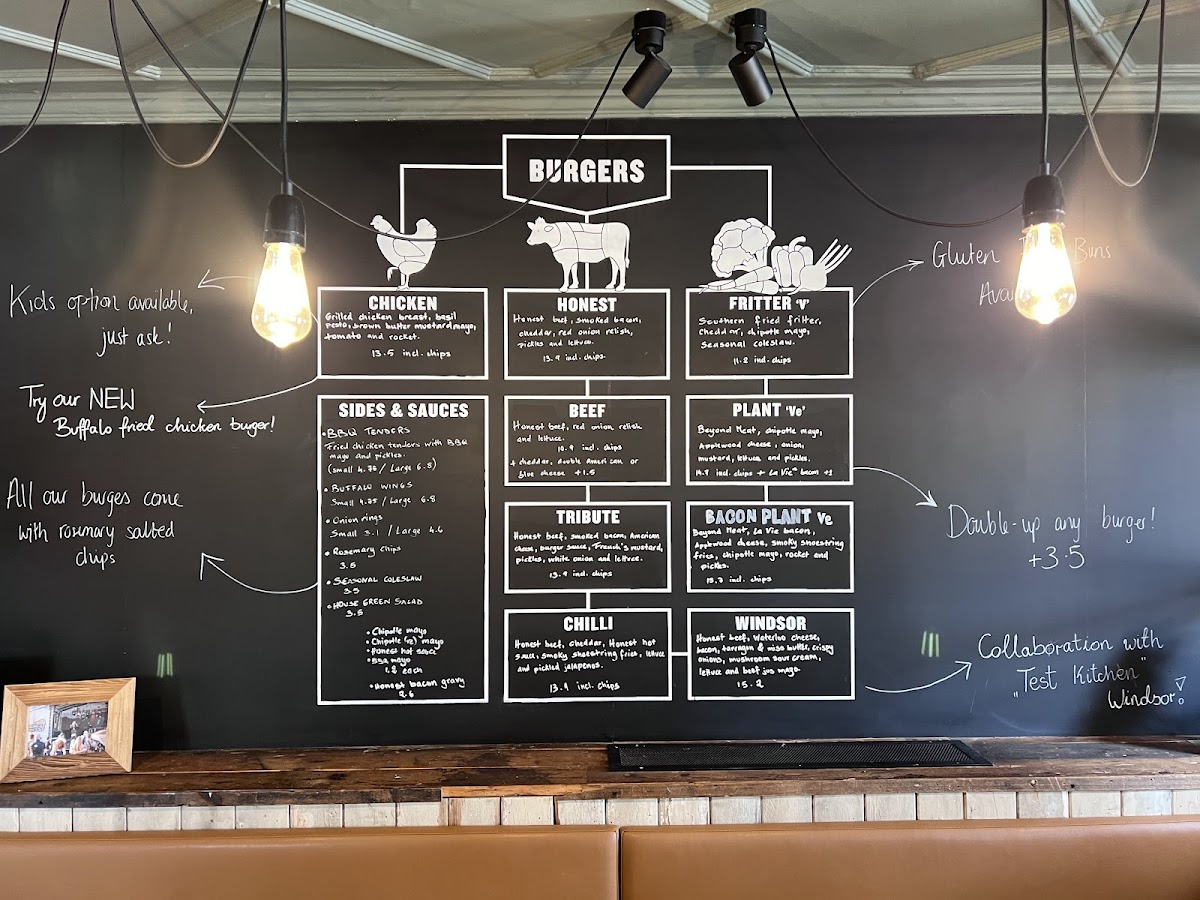 BURGERS
Kids option available,
just ask!
Try our NEW
Buffalo fried chicken burger!
All our burges come
with rosemary salted
chips
CHICKEN
Grilled chicken breast, basil
pesto, brown butter mustard mayo,
tomato and rocket.
13.5 incl. chips
SIDES & SAUCES
• BBQ TENDERS
Fried chicken tenders with BBQ
mayo and pickles.
(small 4.75 / Large 6.8)
• BUFFALO WINGS
Small 4.75 / Large 6.8
• Onion rings
Small 3.1 / Large 4.6
• Rosemary chips
3.5
• SEASONAL COLESLAW
3.5
• HOUSE GREEN SALAD
3.5
• Chipotle mayo
• Chipotle (ve) mayo
• Honest hot sauce
• BBQ mayo
1.2 each
• Honest bacon gravy
2.6
HONEST
Honest beef, smoked bacon,
cheddar, red onion relish,
pickles and lettuce.
13.9 incl. chips
BEEF
Honest beef, red onion relish
and lettuce.
10.9 incl. chips
+ cheddar, double American or
blue cheese +1.5
TRIBUTE
Honest beef, smoked bacon, American
cheese, burger sauce, French's mustard,
pickles, white onion and lettuce.
13.9 incl. chips
CHILLI
Honest beef, cheddar, Honest hot
sauce, smoky shoestring fries, lettuce
and pickled jalapenos.
13.9 incl. chips
FRITTER 'V'
Southern fried fritter,
Cheddar, chipotle mayo,
Seasonal coleslaw.
11.2 incl. chips
PLANT 'Ve'
Beyond Meat, chipotle mayo,
Applewood cheese, onion,
mustard, lettuce and pickles.
incl. chips + La Vie bacon +1
BACON PLANT Ve
Beyond Meat, La Vie bacon,
Applewood cheese, smoky shoestring
fries, chipotle mayo, rocket and
pickles.
incl. chips
WINDSOR
Honest beef, Waterloo cheese,
bacon, tarragon & miso butter, crispy
onions, mushroom sour cream,
lettuce and beef jus mayo.
15.2
Gluten Buns
Double-up any burger!
+3.5
Collaboration with
"Test Kitchen"
Windsor!